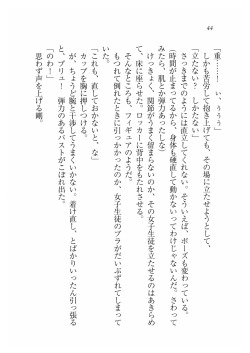 44
「重……！　い、ううう」
　しかも苦労して抱き上げても、その場に立たせようとして、
「立たない？　しかたない」
　さっきまでのようには直立してくれない。そういえば、ポーズも変わっている。
　時間が止まりながら、身体も硬直して動かないってわけじゃないんだ。さわって
みたら、肌とか弾力あったし。
　けっきょく、関節がうまく固まらないのか、その女子生徒を立たせるのはあきらめ
て、床に座らせた。ロッカーに背中をもたれさせて。
　そんなところも、フィギュアのようだ。
　もつれて倒れたときに引っかかったのか、女子生徒のブラがだいぶずれてしまって
いた。
「これも、直しておかないと、な」
　カップを胸に押しつける。
　が、ちょうど腕と干渉してうまくいかない。着け直し、とばかりいったん引っ張る
と、ブリュ！　弾力のあるバストがこぼれ出た。
「のわ！」
　思わず声を上げる剛。